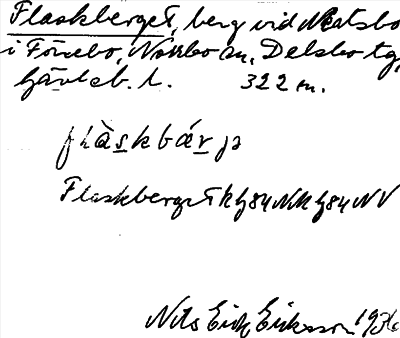 Flaskberget, berg vid Matsbo
i Förebo, Norrbo sn, Delsbo tg,
Gävleb. l. 322 m.
flàskbárjə
Flaskberget
Nils Erik Eriksson 1936